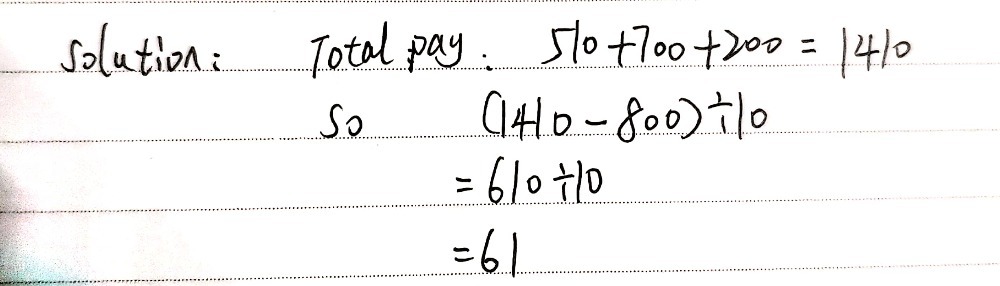 Solution: Total pay: 510+700+200=1410
So (1410-800)÷10
=610÷10
=61